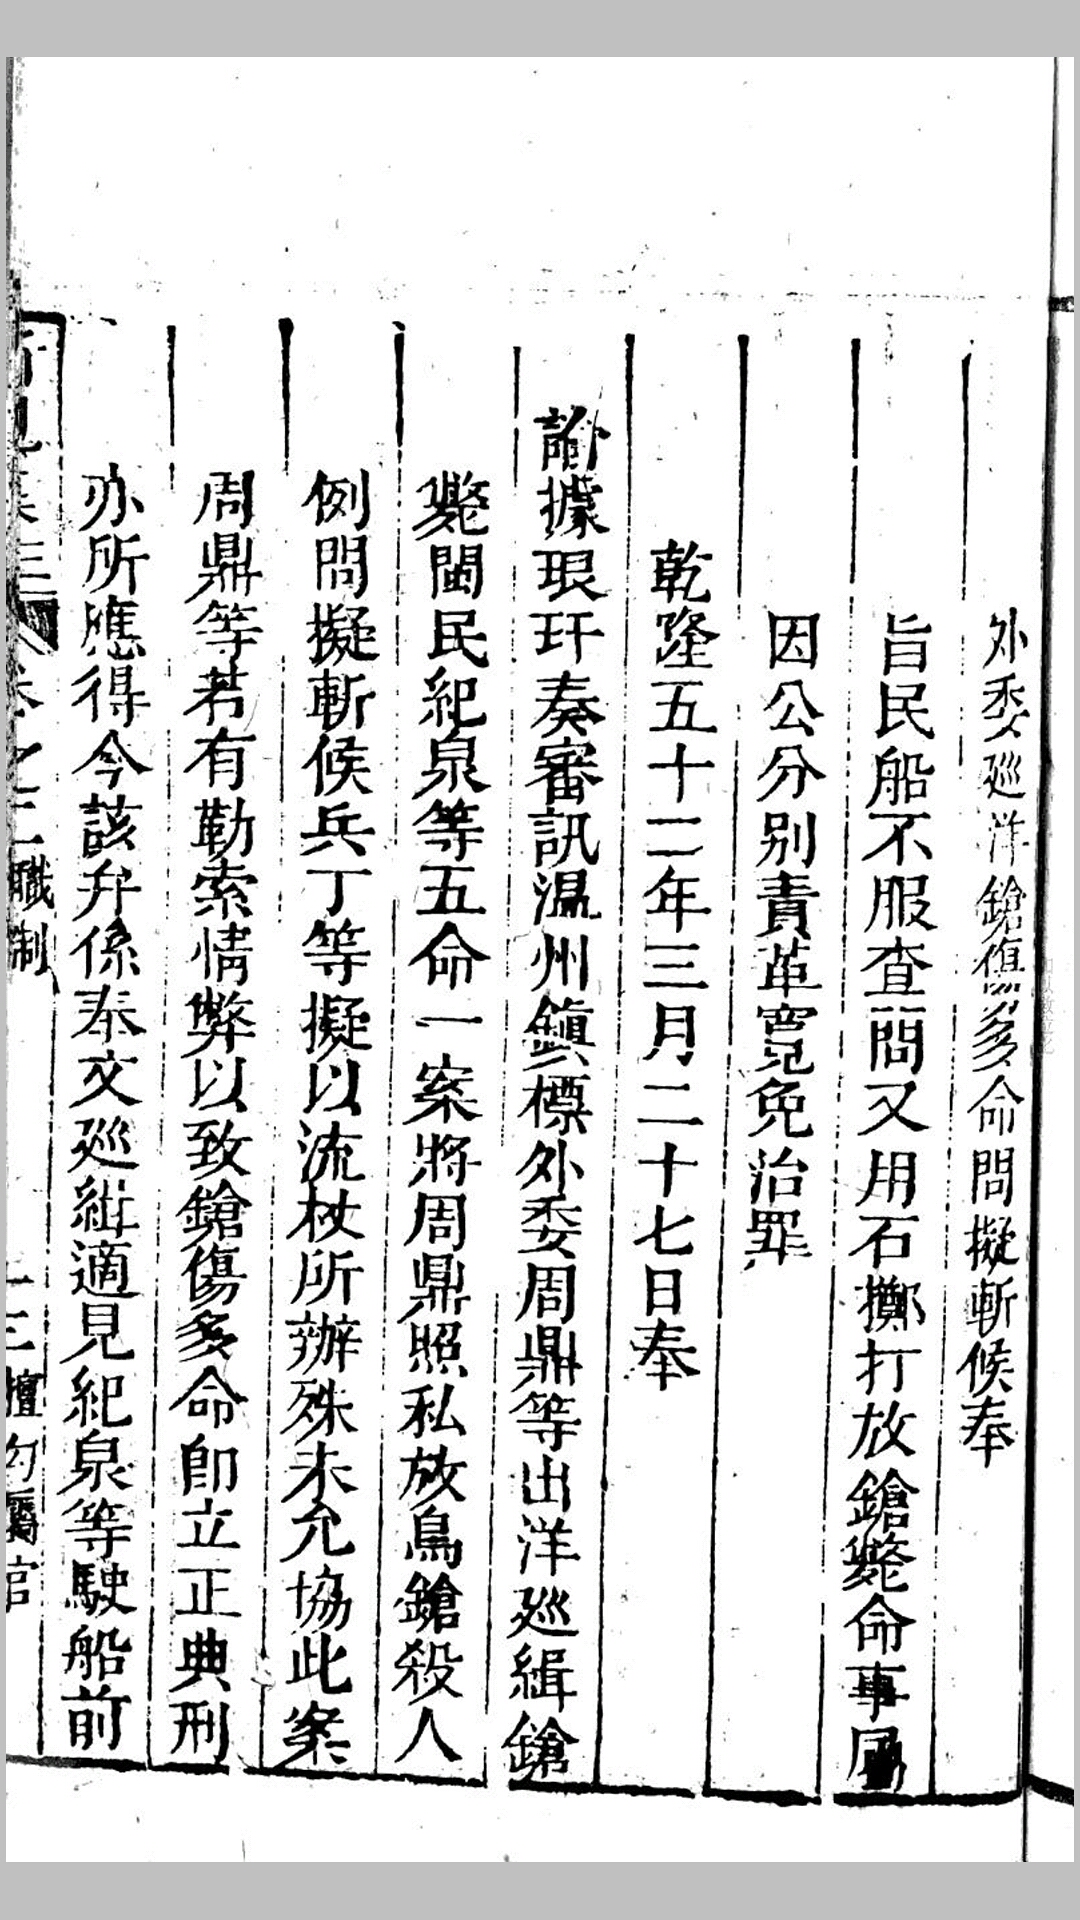 外委巡洋鎗傷多命問擬斬候奉
旨民船不服查問又用石擲打放鎗斃命事屬
因公分别責革寬免治罪
乾隆五十二年三月二十七日奉
諭據琅玕奏審訊温州鎮標外委周鼎等出洋巡緝鎗
斃閩民紀泉等五命一案將周鼎照私放鳥鎗殺人
例問擬斬候兵丁等擬以流杖所辦殊未允協此案
周鼎等若有勒索情弊以致鎗傷多命卽立正典刑
亦所應得今該弁係奉文巡緝適見紀泉等駛船前
卷之三職制
擅勾屬官